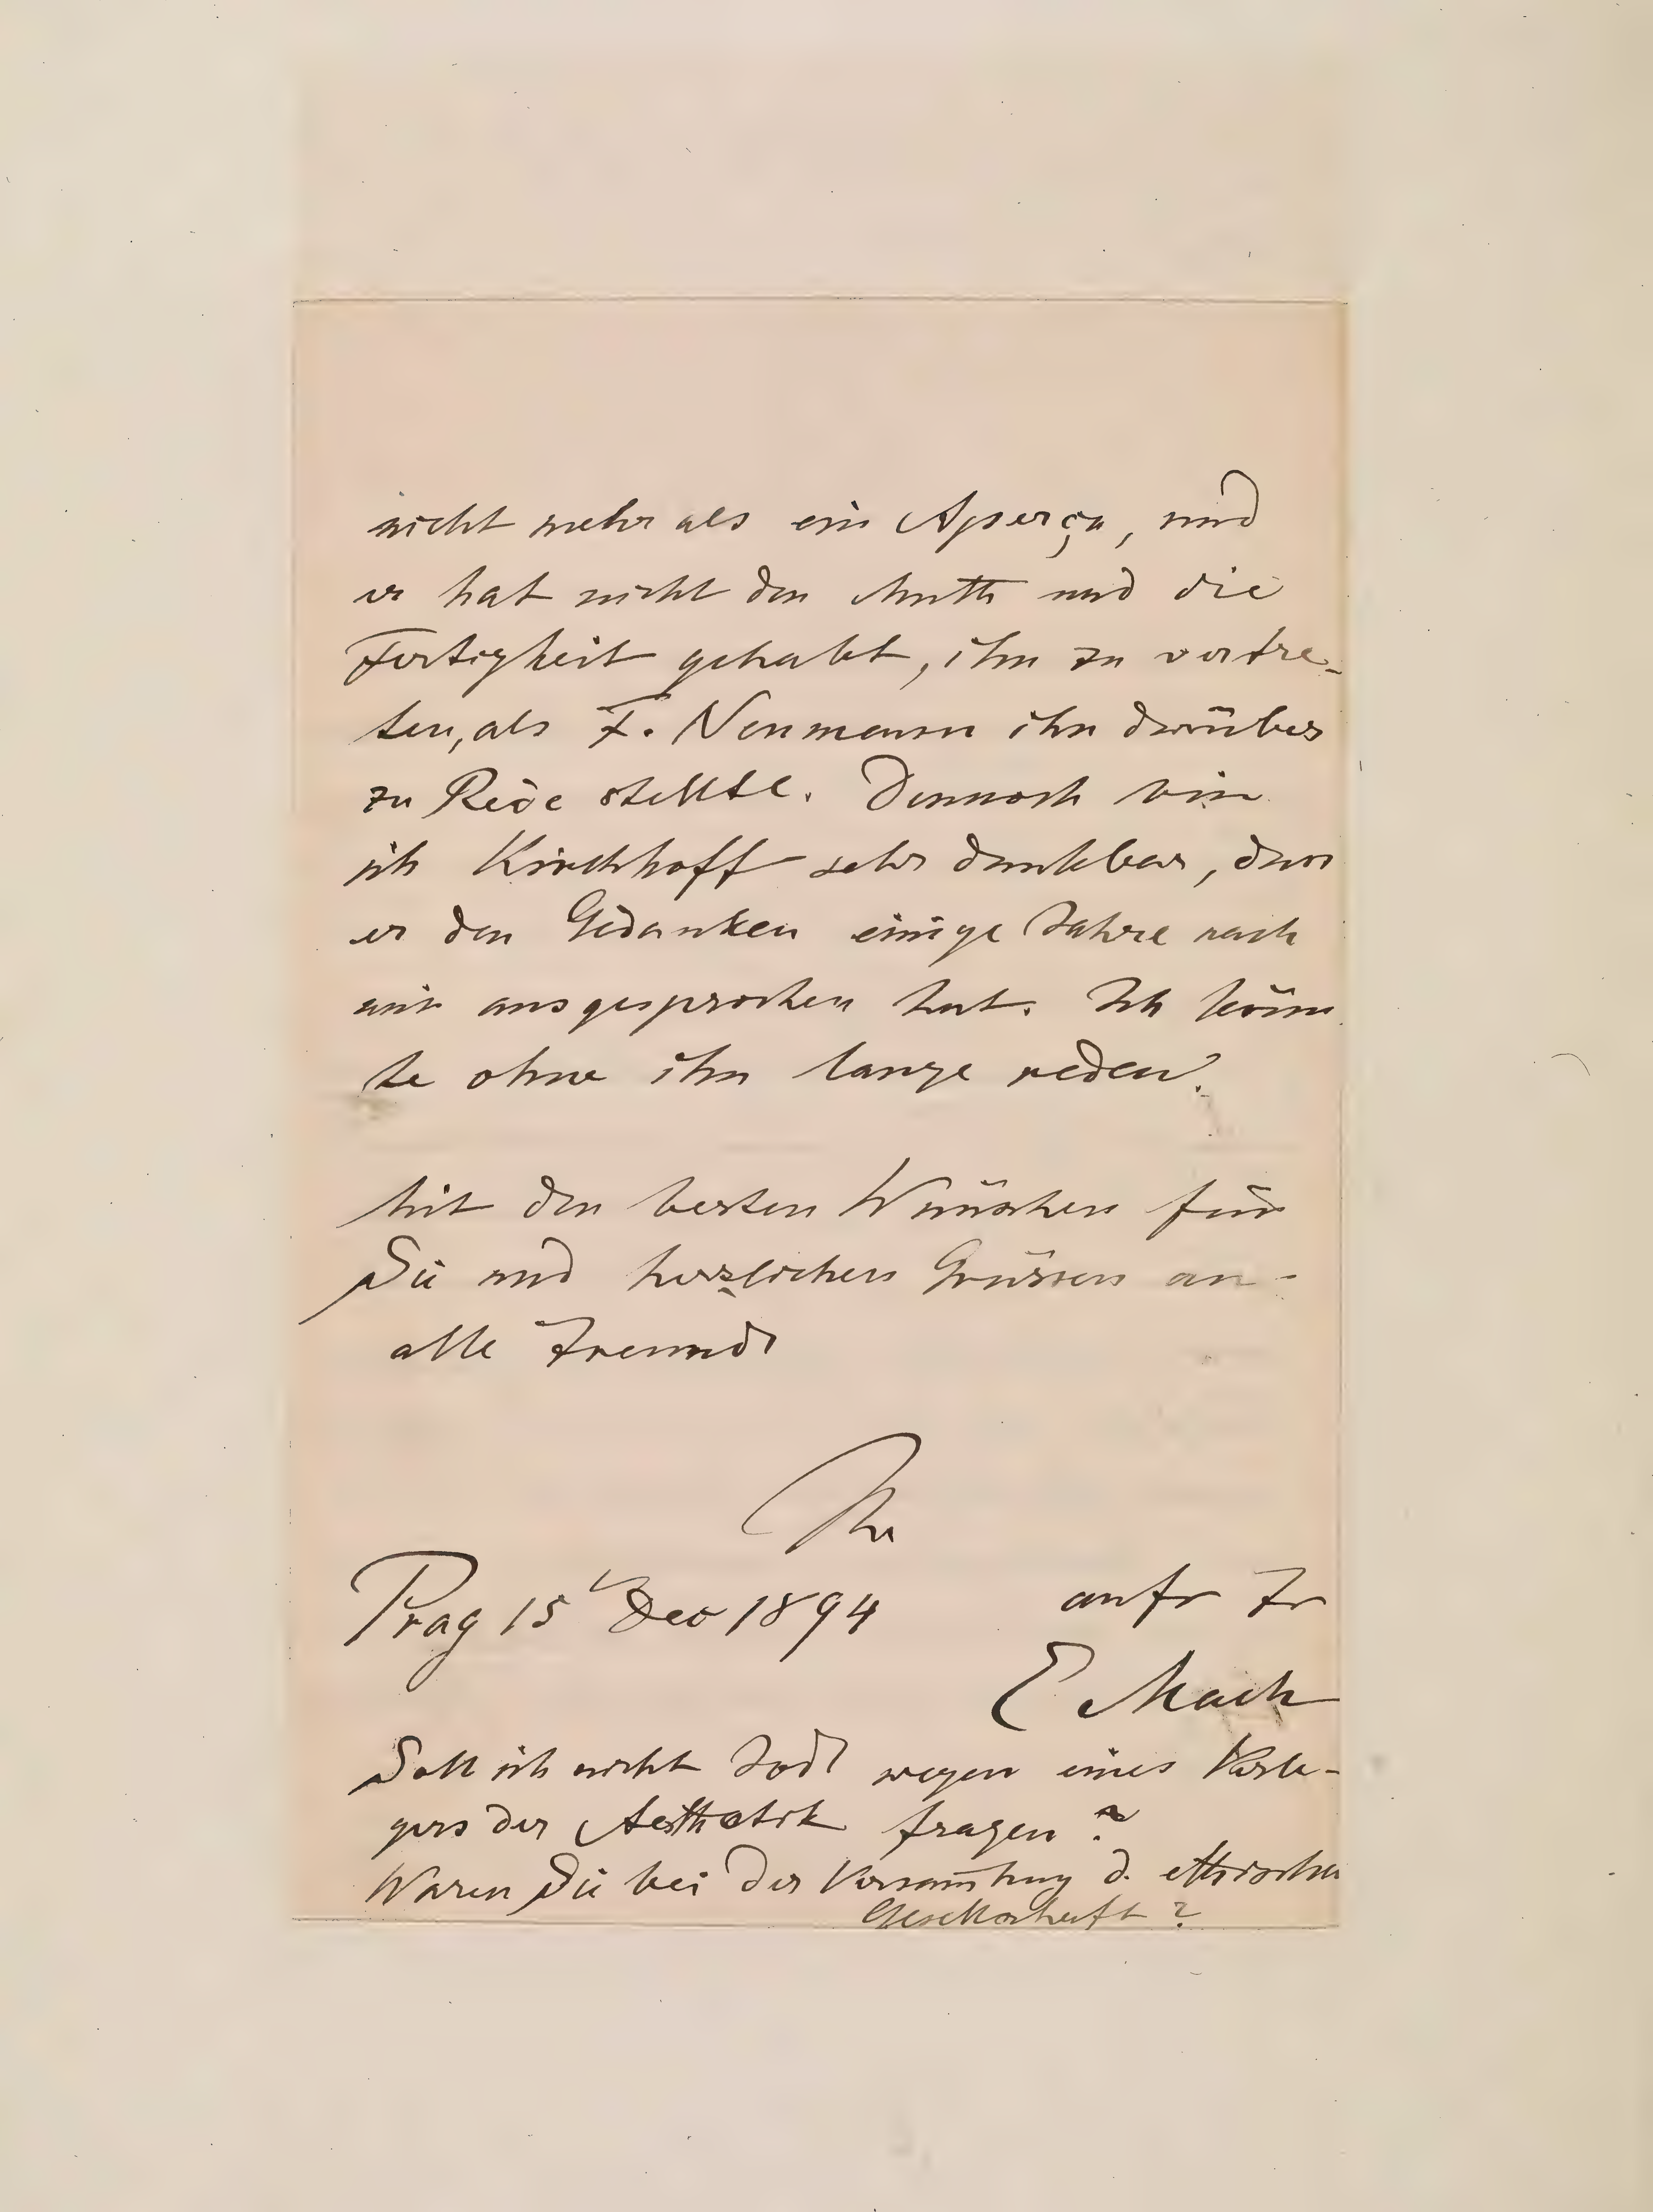 nicht mehr als ein Aperçu, und
er hat nicht den Muth und die
Fertigkeit gehabt, ihn zu vertre-
ten, als F. Neumann ihn darüber
zu Rede stellte. Dennoch bin
ich Kirchhoff sehr dankbar, dass
er den Gedanken einige Jahre nach
mir ausgesprochen hat. Ich könn
te ohne ihn lange reden.
Mit den besten Wünschen für
Sie und herzlichen Grüssen an
alle Freunde
Ihr
Prag 15 Dec 1894
aufr Fr
E Mach
Soll ich nicht Jodl wegen eines Verle-
gers der Aesthetik fragen?
Waren Sie bei der Versam̅lung d. ethischen
Gesellschaft?